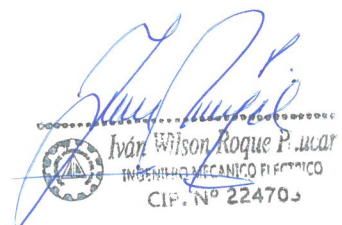 Iván Wilson Roque P ucar
INGENIERO MECANICO ELECTRICO
CIP. Nº 22470